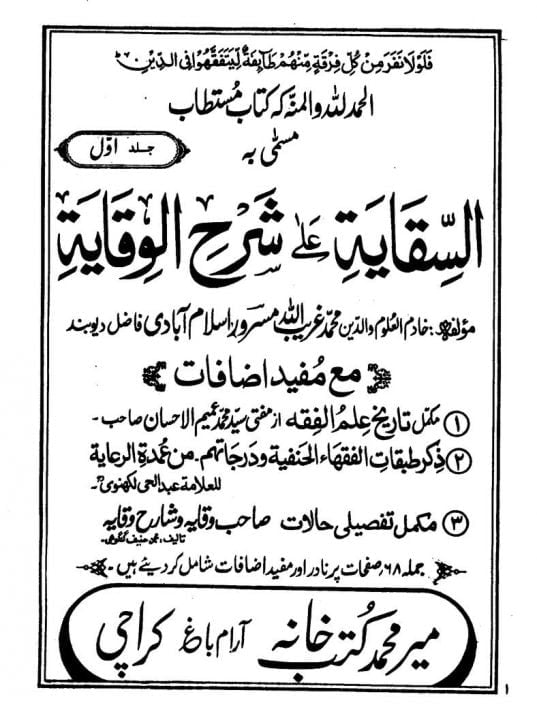 فَلَوْلَا نَفَرَ مِنْ كُلِّ فِرْقَةٍ مِّنْهُمْ طَآئِفَةٌ لِّيَتَفَقَّهُوْا فِی الدِّیْنِ ؕ
الحمد للہ والمنہ کہ کتاب مُستطاب
مسمّٰی بہ
جلد اوّل
السِّقَايَة عَلٰى شَرْحِ الوِقَايَةِ
مؤلفہ : خادم العلوم والدین محمد غریب اللہ مسرور اسلام آبادی فاضل دیوبند
مع مُفید اضافات
① مکمل تاریخ عِلمُ الفِقہ از مفتی سیّد محمد عمیم الاحسان صاحب ۔
② ذکر طبقات الفقهاء الحنفية ودرجاتهم ۔ من عُمدة الرعاية
للعلامة عبدالحی لکھنویؒ ۔
③ مکمل تفصیلی حالات صاحب وقایہ وشارح وقایہ
تالیف: محمد حنیف گنگوہی ۔
جملہ ۶۸ صفحات پر نادر اور مفید اضافات شامل کر دیئے ہیں ۔
میر محمد کُتب خانہ آرام باغ کراچی
۱